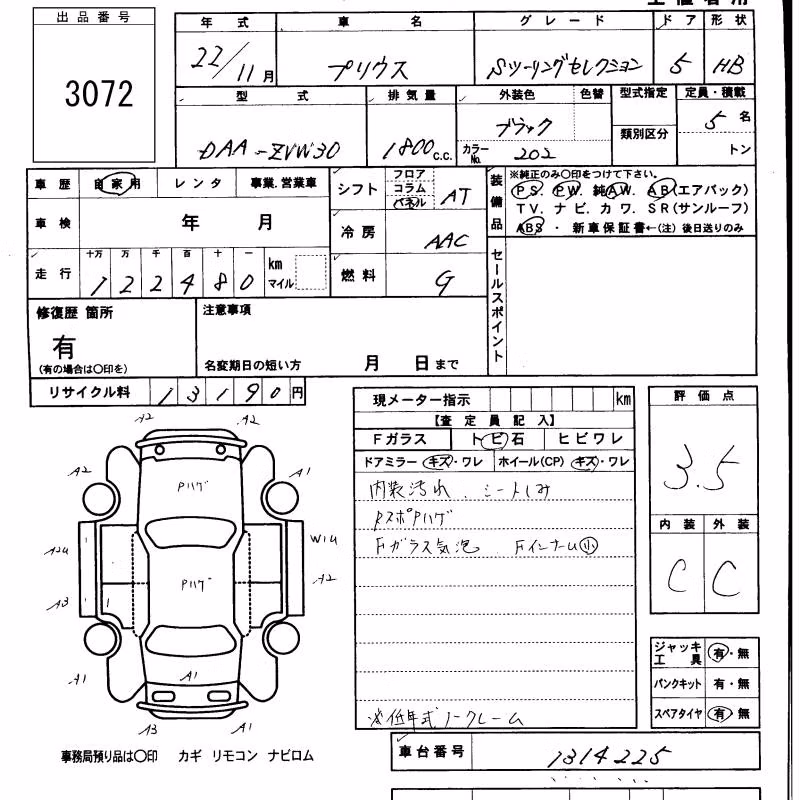 出品番号
3072
年式 車名 グレード ドア 形状
22/11月 プリウス Sツーリングセレクション 5 HB
型式 排気量 外装色 色替 型式指定 定員・積載
DAA-ZVW30 1800c.c. ブラック 5名
カラーNo. 202 類別区分 トン
車歴 自家用 レンタ 事業.営業車
車検 年 月
走行 十万 万 千 百 十 一
122480 km マイル
シフト フロア コラム パネル AT
冷房 AAC
燃料 G
装備品
※純正のみ○印をつけて下さい。
PS. PW. 純AW. AB(エアバック)
TV. ナビ. カワ. SR(サンルーフ)
ABS ・ 新車保証書←(注) 後日送りのみ
セールスポイント
修復歴 箇所
有
(有の場合は○印を)
注意事項
名変期日の短い方 月 日まで
リサイクル料 13190円
現メーター指示 km
【査定員記入】
Fガラス トビ石 ヒビワレ
ドアミラー キズ・ワレ ホイール(CP) キズ・ワレ
内装汚れ、シートしみ
RスポPハゲ
Fガラス気泡 Fインナーム小
※低年式ノークレーム
評価点
3.5
内装 外装
C C
ジャッキ工具 有・無
パンクキット 有・無
スペアタイヤ 有・無
車台番号 1314225
A2 A2
A2 A1
Pハゲ
W1U
A2
A3
Pハゲ
A1 A1
A3 A1
事務局預り品は○印 カギ リモコン ナビロム